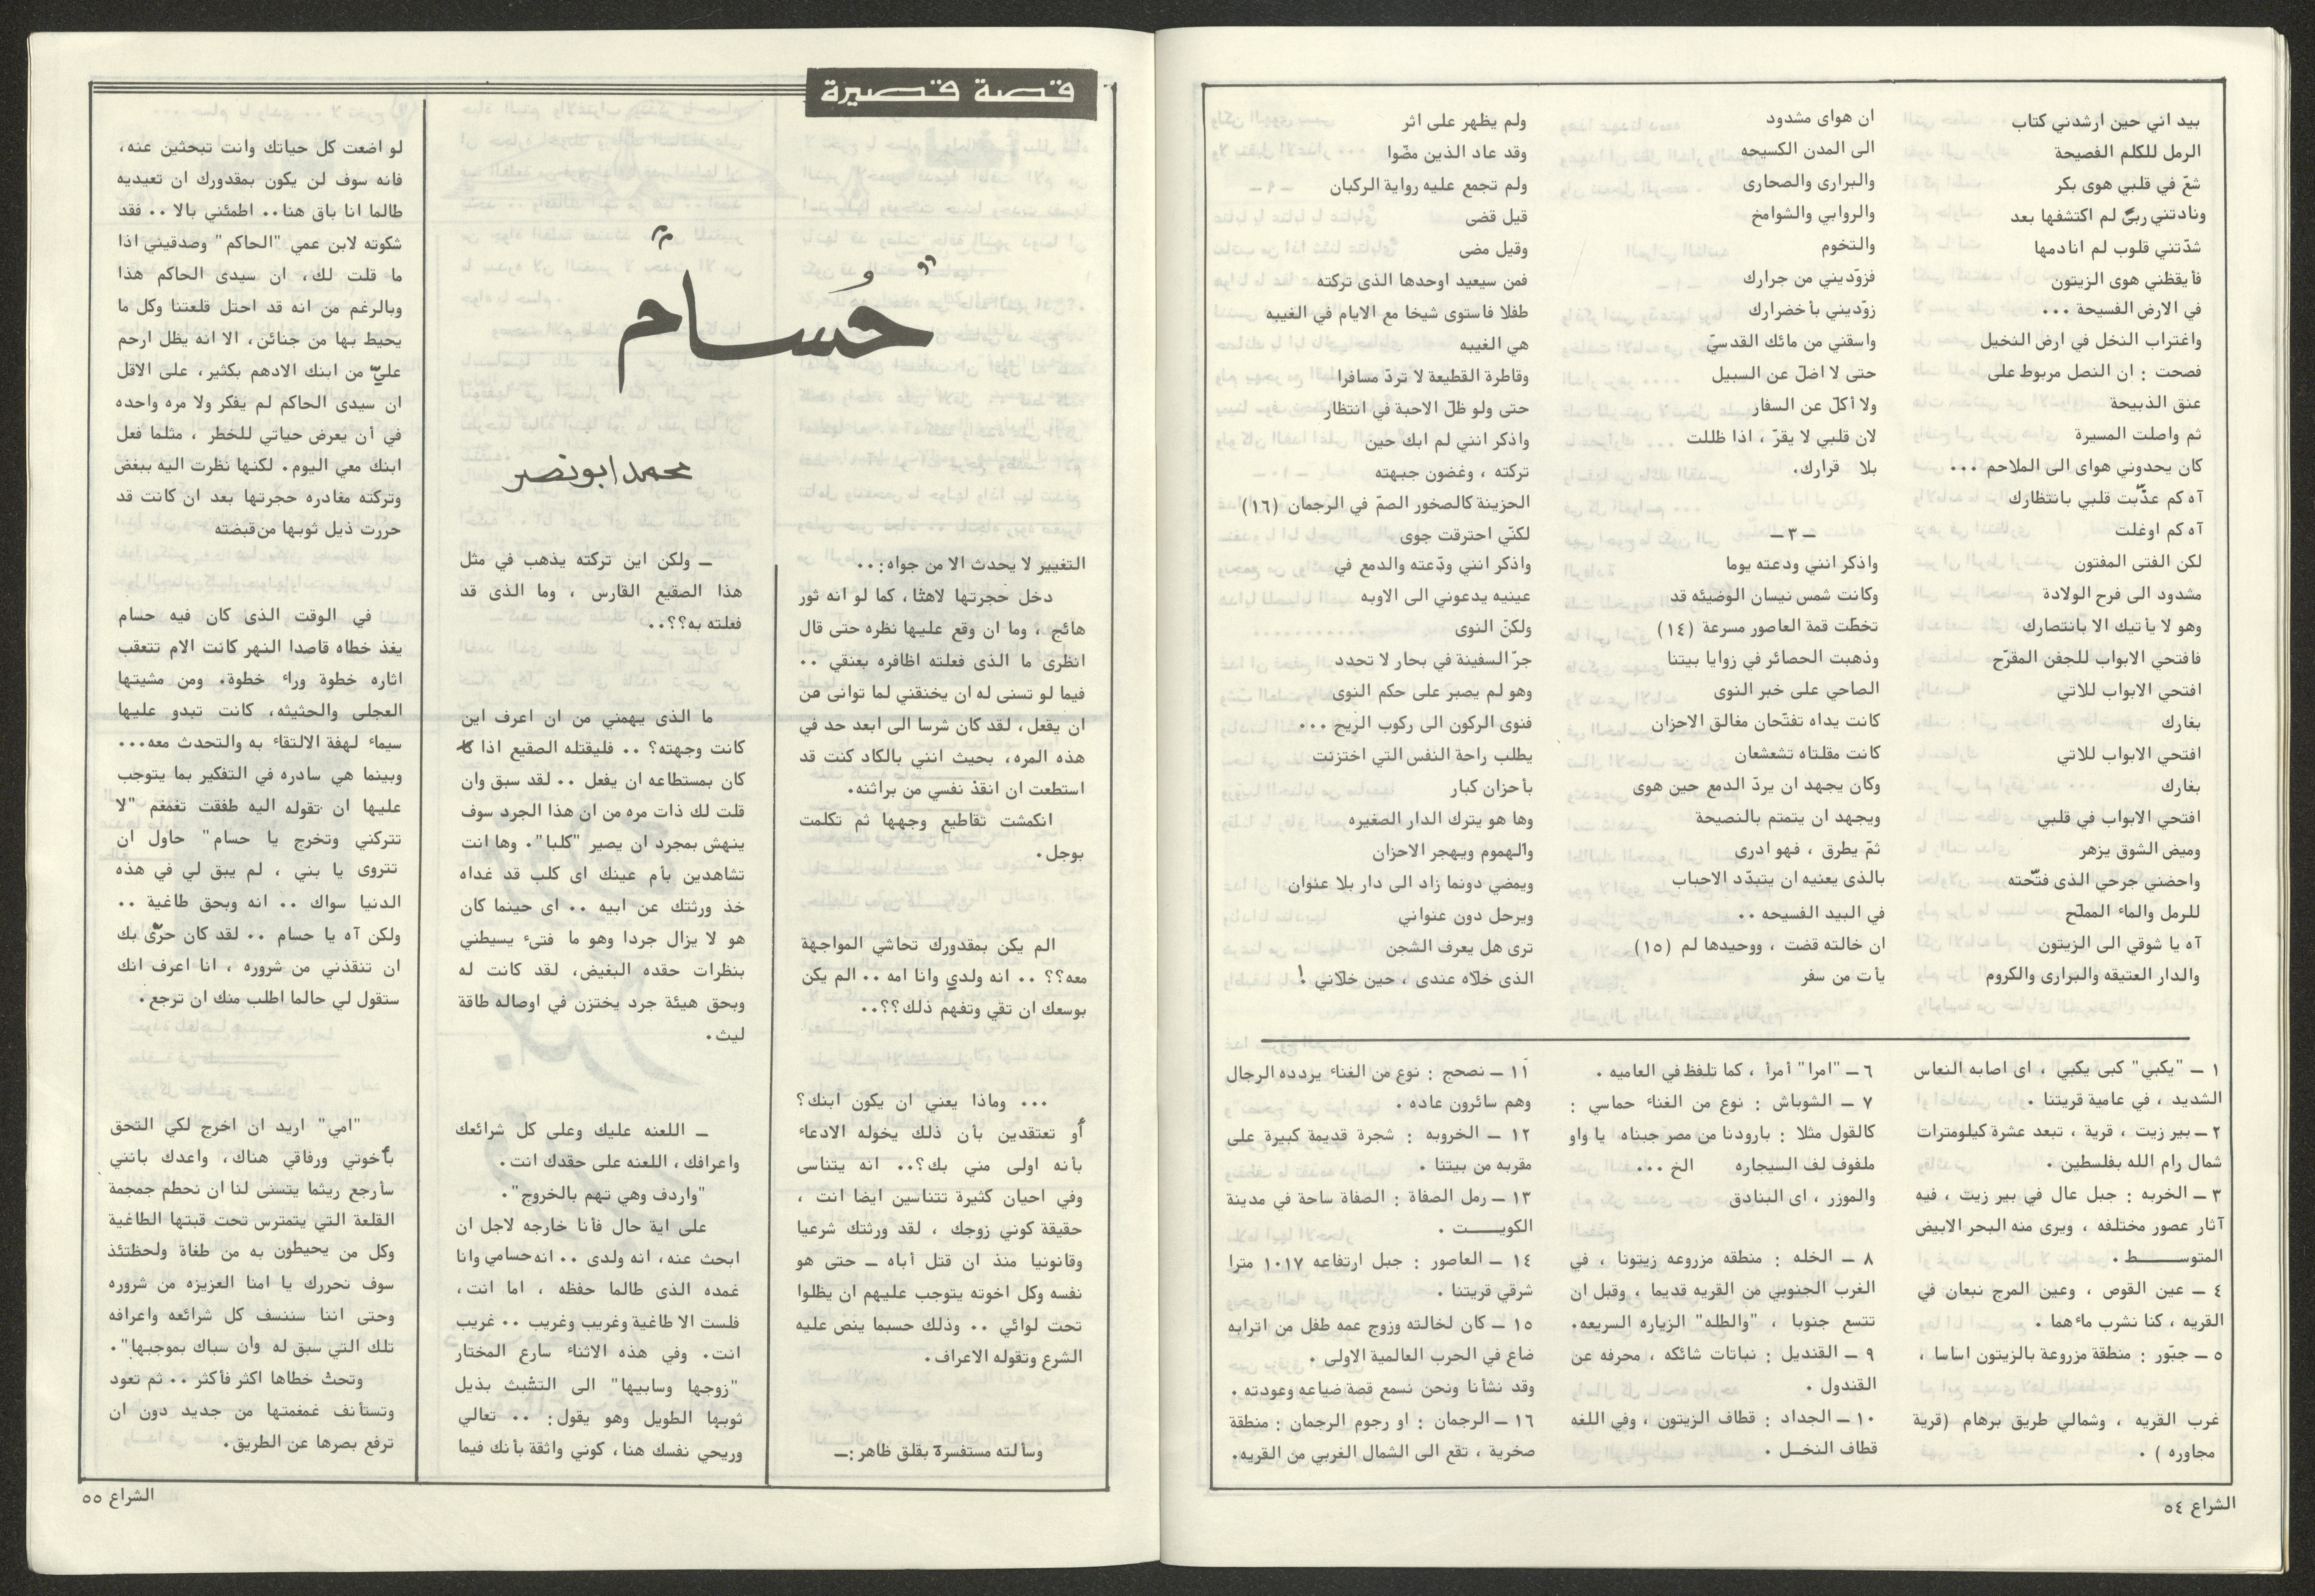 بيد اني حين ارشدني كتاب
الرمل للكلم الفصيحة
شعّ في قلبي هوى بكر
ونادتني ربىً لم اكتشفها بعد
شدّتني قلوب لم انادمها
فأيقظني هوى الزيتون
في الارض الفسيحة ...
واغتراب النخل في ارض النخيل
فصحت : ان النصل مربوط على
عنق الذبيحة
ثم واصلت المسيرة
كان يحدوني هواى الى الملاحم ...
آه كم عذّبت قلبي بانتظارك
آه كم اوغلت
لكن الفتى المفتون
مشدود الى فرح الولادة
وهو لا يأتيك الا بانتصارك
فافتحي الابواب للجفن المقرّح
افتحي الابواب للاتي
بغارك
افتحي الابواب للاتي
بغارك
افتحي الابواب في قلبي
وميض الشوق يزهر
واحضني جرحي الذى فتّحته
للرمل والماء المملّح
آه يا شوقي الى الزيتون
والدار العتيقه والبرارى والكروم
ان هواى مشدود
الى المدن الكسيحه
والبرارى والصحارى
والروابي والشوامخ
والتخوم
فزوّديني من جرارك
زوّديني بأخضرارك
واسقني من مائك القدسيّ
حتى لا اضلّ عن السبيل
ولا أكلّ عن السفار
لان قلبي لا يقرّ ، اذا ظللت
بلا قرارك.
ــ ٣ ــ
واذكر انني ودعته يوما
وكانت شمس نيسان الوضيئه قد
تخطّت قمة العاصور مسرعة (١٤)
وذهبت الحصائر في زوايا بيتنا
الصاحي على خبر النوى
كانت يداه تفتّحان مغالق الاحزان
كانت مقلتاه تشعشعان
وكان يجهد ان يردّ الدمع حين هوى
ويجهد ان يتمتم بالنصيحة
ثمّ يطرق ، فهو ادرى
بالذى يعنيه ان يتبدّد الاحباب
في البيد الفسيحه ..
ان خالته قضت ، ووحيدها لم (١٥)
يأت من سفر
ولم يظهر على اثر
وقد عاد الذين مضّوا
ولم تجمع عليه رواية الركبان
قيل قضى
وقيل مضى
فمن سيعيد اوحدها الذى تركته
طفلا فاستوى شيخا مع الايام في الغيبه
هي الغيبه
وقاطرة القطيعة لا تردّ مسافرا
حتى ولو ظلّ الاحبة في انتظار
واذكر انني لم ابك حين
تركته ، وغضون جبهته
الحزينة كالصخور الصمّ في الرجمان (١٦)
لكنّي احترقت جوى
واذكر انني ودّعته والدمع في
عينيه يدعوني الى الاوبه
ولكنّ النوى
جرّ السفينة في بحار لا تحدد
وهو لم يصبر على حكم النوى
فنوى الركون الى ركوب الريح ...
يطلب راحة النفس التي اختزنت
بأحزان كبار
وها هو يترك الدار الصغيره
والهموم ويهجر الاحزان
ويمضي دونما زاد الى دار بلا عنوان
ويرحل دون عنواني
ترى هل يعرف الشجن
الذى خلاّه عندى ، حين خلاّني !
١ ــ "يكبي" كبى يكبي ، اى اصابه النعاس
الشديد ، في عامية قريتنا .
٢ ــ بير زيت ، قرية ، تبعد عشرة كيلومترات
شمال رام الله بفلسطين .
٣ ــ الخربه : جبل عال في بير زيت ، فيه
آثار عصور مختلفه ، ويرى منه البحر الابيض
المتوســـط .
٤ ــ عين القوص ، وعين المرج نبعان في
القريه ، كنا نشرب ماءهما .
٥ ــ جبّور : منطقة مزروعة بالزيتون اساسا ،
غرب القريه ، وشمالي طريق برهام (قرية
مجاوره ) .
٦ ــ "امرا" أمرأ ، كما تلفظ في العاميه .
٧ ــ الشوباش : نوع من الغناء حماسي :
كالقول مثلا : بارودنا من مصر جبناه يا واو
ملفوف لف السيجاره الخ ...
والموزر ، اى البنادق
٨ ــ الخله : منطقه مزروعه زيتونا ، في
الغرب الجنوبي من القريه قديما ، وقبل ان
تتسع جنوبا ، "والطله" الزياره السريعه.
٩ ــ القنديل : نباتات شائكه ، محرفه عن
القندول .
١٠ ــ الجداد : قطاف الزيتون ، وفي اللغه
قطاف النخـل .
١١ ــ نصحج : نوع من الغناء يردده الرجال
وهم سائرون عاده .
١٢ ــ الخروبه : شجرة قديمة كبيرة على
مقربه من بيتنا .
١٣ ــ رمل الصفاة : الصفاة ساحة في مدينة
الكويـــت .
١٤ ــ العاصور : جبل ارتفاعه ١٠١٧ مترا
شرقي قريتنا .
١٥ ــ كان لخالته وزوج عمه طفل من اترابه
ضاع في الحرب العالمية الاولى .
وقد نشأنا ونحن نسمع قصة ضياعه وعودته .
١٦ ــ الرجمان : او رجوم الرجمان : منطقة
صخرية ، تقع الى الشمال الغربي من القريه.
الشراع ٥٤
قصة قصيرة
"حُسام"
محمد ابو نصر
التغيير لا يحدث الا من جواه:..
دخل حجرتها لاهثا، كما لو انه ثور
هائج ، وما ان وقع عليها نظره حتى قال
انظرى ما الذى فعلته اظافره بعنقي ..
فيما لو تسنى له ان يخنقني لما توانى من
ان يفعل، لقد كان شرسا الى ابعد حد في
هذه المره، بحيث انني بالكاد كنت قد
استطعت ان انقذ نفسي من براثنه.
انكمشت تقاطيع وجهها ثم تكلمت
بوجل.
الم يكن بمقدورك تحاشي المواجهة
معه؟؟ .. انه ولدي وانا امه .. الم يكن
بوسعك ان تقي وتفهم ذلك؟؟..
... وماذا يعني ان يكون ابنك؟
أو تعتقدين بأن ذلك يخوله الادعاء
بأنه اولى مني بك؟.. انه يتناسى
وفي احيان كثيرة تتناسين ايضا انت ،
حقيقة كوني زوجك ، لقد ورثتك شرعيا
وقانونيا منذ ان قتل أباه ــ حتى هو
نفسه وكل اخوته يتوجب عليهم ان يظلوا
تحت لوائي .. وذلك حسبما ينص عليه
الشرع وتقوله الاعراف.
وسألته مستفسرة بقلق ظاهر:ــ
ــ ولكن اين تركته يذهب في مثل
هذا الصقيع القارس ، وما الذى قد
فعلته به؟؟..
ما الذى يهمني من ان اعرف اين
كانت وجهته؟ .. فليقتله الصقيع اذا
كان بمستطاعه ان يفعل .. لقد سبق وان
قلت لك ذات مره من ان هذا الجرد سوف
ينهش بمجرد ان يصير "كلبا". وها انت
تشاهدين بأم عينك اى كلب قد غداه
خذ ورثتك عن ابيه .. اى حينما كان
هو لا يزال جردا وهو ما فتىء يسيطني
بنظرات حقده البغيض، لقد كانت له
وبحق هيئة جرد يختزن في اوصاله طاقة
ليث.
ــ اللعنه عليك وعلى كل شرائعك
واعرافك، اللعنه على حقدك انت.
"واردف وهي تهم بالخروج".
على اية حال فأنا خارجه لاجل ان
ابحث عنه، انه ولدى .. انه حسامي وانا
غمده الذى طالما حفظه ، اما انت،
فلست الا طاغية وغريب وغريب .. غريب
انت. وفي هذه الاثناء سارع المختار
"زوجها وسابيها" الى التشبث بذيل
ثوبها الطويل وهو يقول: .. تعالي
وريحي نفسك هنا، كوني واثقة بأنك فيما
لو اضعت كل حياتك وانت تبحثين عنه،
فانه سوف لن يكون بمقدورك ان تعيديه
طالما انا باق هنا.. اطمئني بالا .. فقد
شكوته لابن عمي "الحاكم" وصدقيني اذا
ما قلت لك، ان سيدى الحاكم هذا
وبالرغم من انه قد احتل قلعتنا وكل ما
يحيط بها من جنائن، الا انه يظل ارحم
عليّ من ابنك الادهم بكثير، على الاقل
ان سيدى الحاكم لم يفكر ولا مره واحده
في أن يعرض حياتي للخطر ، مثلما فعل
ابنك معي اليوم. لكنها نظرت اليه ببغض
وتركته مغادره حجرتها بعد ان كانت قد
حررت ذيل ثوبها من قبضته
في الوقت الذى كان فيه حسام
يغذ خطاه قاصدا النهر كانت الام تتعقب
اثاره خطوة وراء خطوة. ومن مشيتها
العجلى والحثيثه، كانت تبدو عليها
سيماء لهفة الالتقاء به والتحدث معه...
وبينما هي سادره في التفكير بما يتوجب
عليها ان تقوله اليه طفقت تغمغم "لا
تتركني وتخرج يا حسام" حاول ان
تتروى يا بني ، لم يبق لي في هذه
الدنيا سواك .. انه وبحق طاغية ..
ولكن آه يا حسام .. لقد كان حرّى بك
ان تنقذني من شروره ، انا اعرف انك
ستقول لي حالما اطلب منك ان ترجع.
"امي" اريد ان اخرج لكي التحق
بأخوتي ورفاقي هناك، واعدك بانني
سأرجع ريثما يتسنى لنا ان نحطم جمجمة
القلعة التي يتمترس تحت قبتها الطاغية
وكل من يحيطون به من طغاة ولحظتئذ
سوف نحررك يا امنا العزيزه من شروره
وحتى اننا سننسف كل شرائعه واعرافه
تلك التي سبق له وأن سباك بموجبها".
وتحث خطاها اكثر فأكثر .. ثم تعود
وتستأنف غمغمتها من جديد دون ان
ترفع بصرها عن الطريق.
الشراع ٥٥